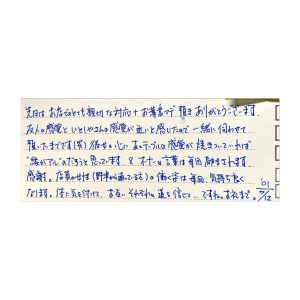 先日は お店でとても親切な対応+お葉書まで 頂き ありがとうございます.
友人の感覚と ひとしやさんの感覚が 近いと感じたので 一緒に伺わせて
頂いたまでです(笑) 彼女の心に あのテーブルの感覚が 焼きついていれば
"縁がアル"のだろうと思っています. 言葉は毎回 励まされます.
感謝. 店員の女性 の働く姿は 毎回 気持ち良く
なります. 体に気を付けて. お互い それぞれの 道を信じて... ですね. お礼まで.
'01
9/12